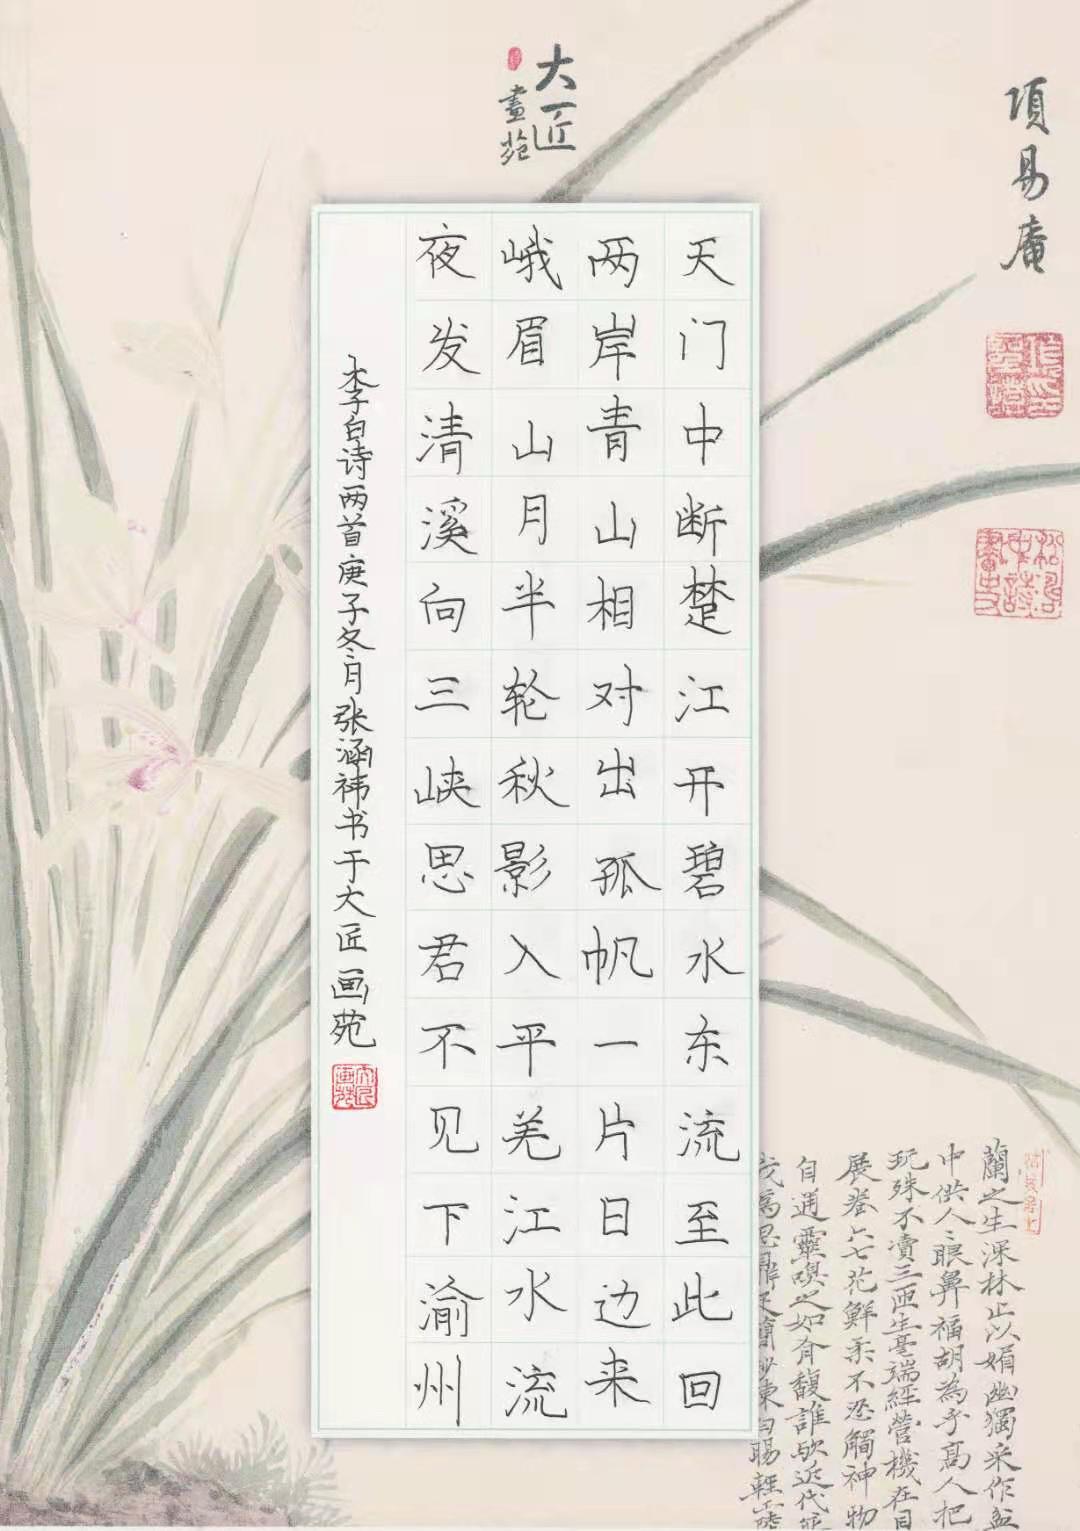 大匠
畫苑
項易庵
天门中断楚江开碧水东流至此回
两岸青山相对出孤帆一片日边来
峨眉山月半轮秋影入平羌江水流
夜发清溪向三峡思君不见下渝州
李白诗两首庚子冬月张涵祎书于大匠画苑
大匠画苑
蘭之生深林止以媚幽獨采作盆
中供人〻眼鼻福胡為乎高人把
玩殊不賣三匝生毫端經營機在目
展卷六七花鮮柔不恐觸神物
自通靈嗅之如有馥誰歟近代